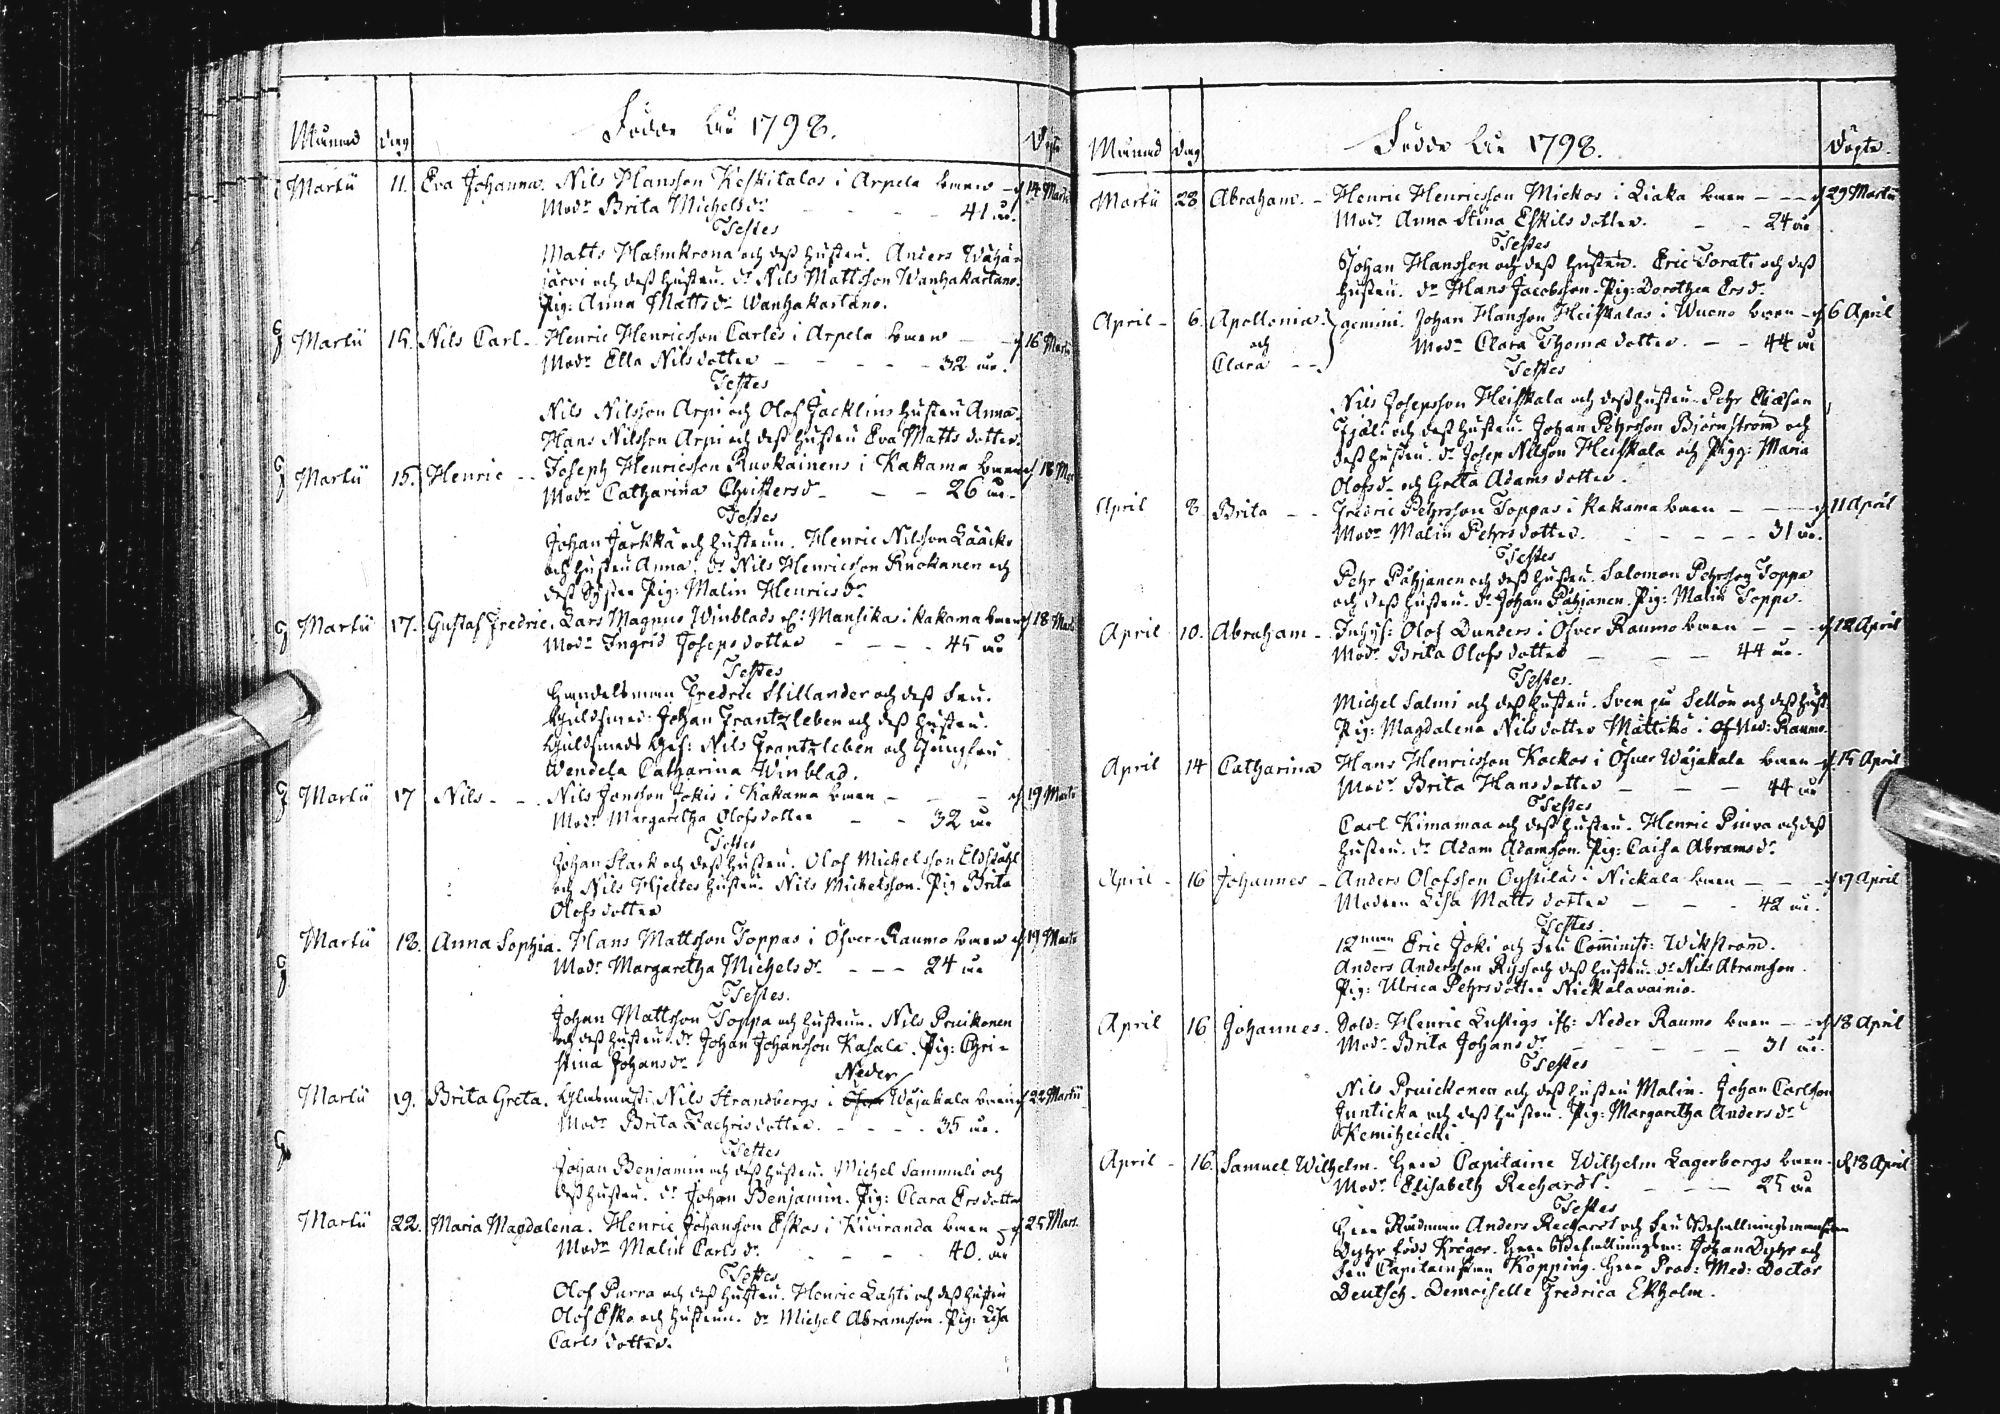 Födde År 1798.
Månad Dag Döpte
Martii 11. Eva Johanna. Nils Hansson Keskitalos i Arpela barn - d 14 Martii
Modr Brita Michelsdr - - - - 41 år.
Testes
Matts Halmkrona och dess hustru. Anders Wähä-
järvi och dess hustru. dr Nils Mattsson Wanhakartano.
Pig: Anna Mattsdr Wanhakartano.
Martii 15. Nils Carl - Henric Henricsson Carles i Arpela barn - d 16 Martii
Modr Ella Nilsdotter - - - - 32 år.
Testes
Nils Nilsson Arpi och Olof Jacklins hustru Anna.
Hans Nilsson Arpi och dess hustru Eva Mattsdotter.
Martii 15. Henric - - Joseph Henricsson Ruokainens i Kakama barn d 18 Mar
Modr Catharina Christersdr - - 26 år.
Testes
Johan Jarkkä och hustrun. Henric Nilsson Lääcko
och hustru Anna. dr Nils Henricsson Ruokanen och
dess Syster Pig: Malin Henricsdr
Martii 17. Gustaf Fredric. Lars Magnus Winblads Mansikas i Kakama barn d 18 Mart
Modr Ingrid Josepsdotter - - - - 45 år
Testes
Handelsman Fredric Stillander och dess Fru.
Guldsmed: Johan Frantzleben och dess hustru.
Guldsmeds Ges: Nils Frantzleben och Jungfru
Wendela Catharina Winblad.
Martii 17 Nils - - Nils Jonsson Jokis i Kakama barn - - - d 19 Martii
Modr Margaretha Olofsdotter - - 32 år
Testes
Johan Stark och dess hustru. Olof Michelsson Eldstähl
och Nils Hjeltes hustru. Nils Michelsson. Pig Brita
Olofsdotter
Martii 18. Anna Sophia. Hans Mattsson Toppas i Öfver-Raumo barn d 19 Martii
Modr Margaretha Michelsdr - - - 24 år
Testes.
Johan Mattsson Toppa och hustrun. Nils Pruikonen
och dess hustru. dr Johan Johansson Kasala. Pig: Chri-
stina Johansdr
Neder
Martii 19. Brita Greta. Glasmäst: Nils Strandbergs i Öfver Wäjakala barn d 22 Martii
Modr Brita Zachrisdotter. - - - - 35 år.
Testes
Johan Benjamin och dess hustru. Michel Sammuli och
dess hustru. dr Johan Benjamin. Pig: Clara Ersdotter
Martii 22. Maria Magdalena. Henric Johansson Eskos i Kiviranda barn - d 25 Mart.
Modr Malin Carlsdr - - - - 40. år
Testes
Olof Purra och dess hustru. Henric Lahti och dess hustru
Olof Esko och hustrun. dr Michel Abramsson. Pig: Lisa
Carlsdotter.
Födde År 1798.
Månad Dag Döpte.
Martii 28 Abraham. - Henric Henricsson Mickos i Liaka barn - - - d 29 Martii
Modr Anna Stina Eskilsdotter. - - 24 år
Testes
Johan Hansson och dess hustru. Eric Torati och dess
hustru. dr Hans Jacobsson. Pig: Dorothea Ersdr
April - 6. Apollonia. gemini. Johan Hansson Heiskalas i Wuono barn - d 6 April
och
Clara - - Modr Clara Thomædotter. - - 44 år
Testes
Nils Josepsson Heiskala och dess hustru. Pehr Eliæson
och dess hustru. Johan Pehrsson Björnström och
dess hustru. dr Josep Nilsson Heiskala och Pigg: Maria
Olofsdr och Gretta Adamsdotter.
April 8 Brita - - Fredric Pehrsson Toppas i Kakama barn - - - d 11 April
Modr Malin Pehrsdotter. - - - - - 31 år.
Testes
Pehr Päjjanen och dess hustru. Salomon Pehrsson Toppa
och dess hustru. dr Johan Päjjanen. Pig: Malin Toppa.
April 10. Abraham - Inhys: Olof Dunders i Öfver Raumo barn - - - d 12 April
Modr Brita Olofsdotter - - - 44 år.
Testes.
Michel Salmi och dess hustru. Sven på Sellön och dess hust:
Pig: Magdalena Nilsdotter Mattiko i Ned: Raumo.
April 14 Catharina Hans Henricsson Kockos i Öfver Wäjakala barn - d. 15 April
Modr Brita Hansdotter - - - 44 år
Testes
Carl Kimamaa och dess hustru. Henric Piuva och dess
hustru. dr Adam Adamsson. Pig: Caisa Abramsdr
April - 16 Johannes - Anders Olofsson Oystilas i Nickala barn - - - d 17 April
Modren Lisa Mattsdotter - - - 42 år.
Testes
12man Eric Joki och Fru Comminist: Wikström.
Anders Andersson Ryss och dess hustru. dr Nils Abramsson.
Pig: Ulrica Pehrsdotter Nickalavainio.
April 16 Johannes. Sold: Henric Lustigs Neder Raumo barn - - d 18 April
Modr Brita Johansdr - - - - 31 år.
Testes
Nils Pruickonen och dess hustru Malin. Johan Carlsson
Junticka och dess hustru. Pig: Margaretha Andersdr
Kemiheicki
April - 16. Samuel Wilhelm. Herr Capitaine Wilhelm Lagerborgs barn - d. 18 April
Modr Elisabeth Rechardt. - - - - 25 år
Testes
Herr Rådman Anders Rechardt och Fru Befallningsmanskan
Dyhr född Kröger. Herr Befallningsm: Johan Dyhr och
Fru Capitainskan Köpping. Herr Prov: Med: Doctor
Deutsch. Demoiselle Fredrica Ekholm.